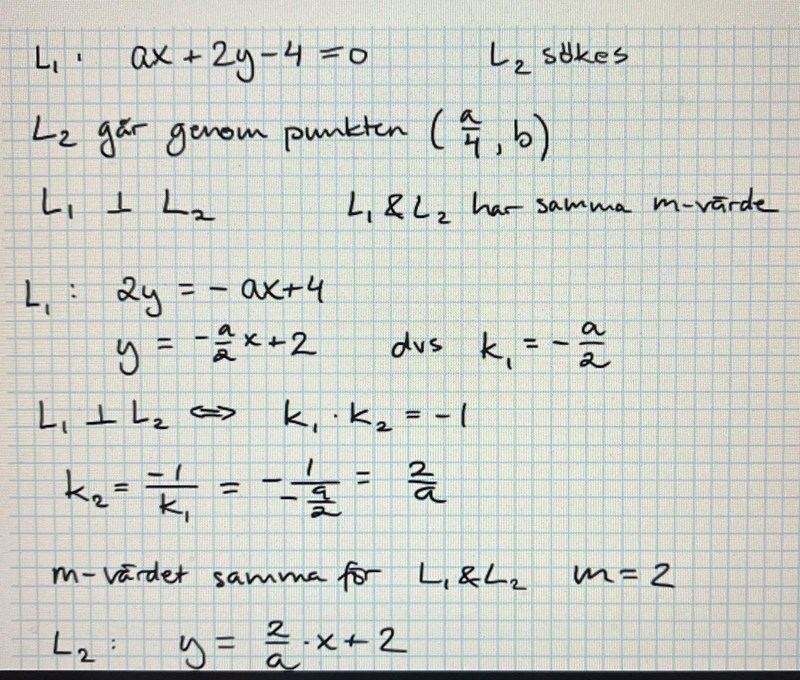 L₁: ax + 2y - 4 = 0 L₂ sökes
L₂ går genom punkten (a/4, b)
L₁ ⊥ L₂ L₁ & L₂ har samma m-värde
L₁: 2y = - ax + 4
y = -a/2 x + 2 dvs k₁ = - a/2
L₁ ⊥ L₂ ⇔ k₁ · k₂ = -1
k₂ = -1/k₁ = - 1/(-a/2) = 2/a
m-värdet samma för L₁ & L₂ m = 2
L₂: y = 2/a · x + 2